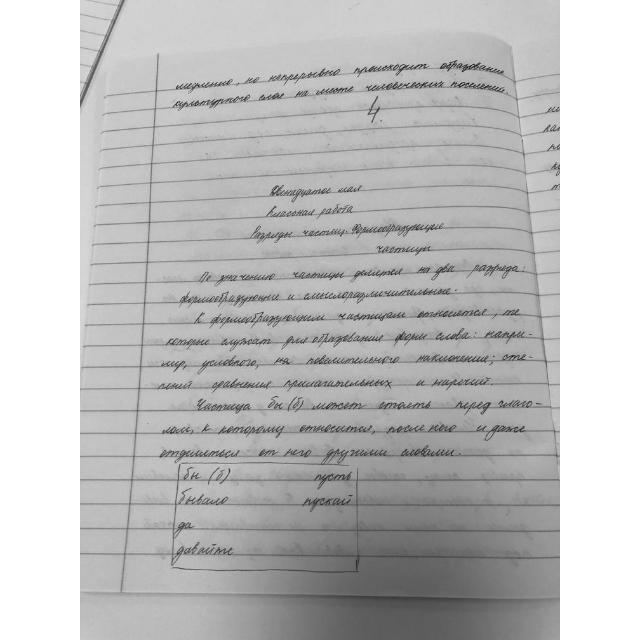 медленно, но непрерывно происходит образование
культурного слоя на месте человеческих поселений.
4
Двенадцатое мая
Классная работа
Разряды частиц. Формообразующие
частицы
По значению частицы делятся на два разряда:
формообразующие и смыслоразличительные.
К формообразующим частицам относятся, те
которые служат для образования форм слова: напри-
мер, условного, на повелительного наклонения; сте-
пеней сравнения прилагательных и наречий.
Частица бы (б) может стоять перед глаго-
лом, к которому относится, после него и даже
отделяться от него другими словами.
бы (б) пусть
бывало пускай
да
давайте